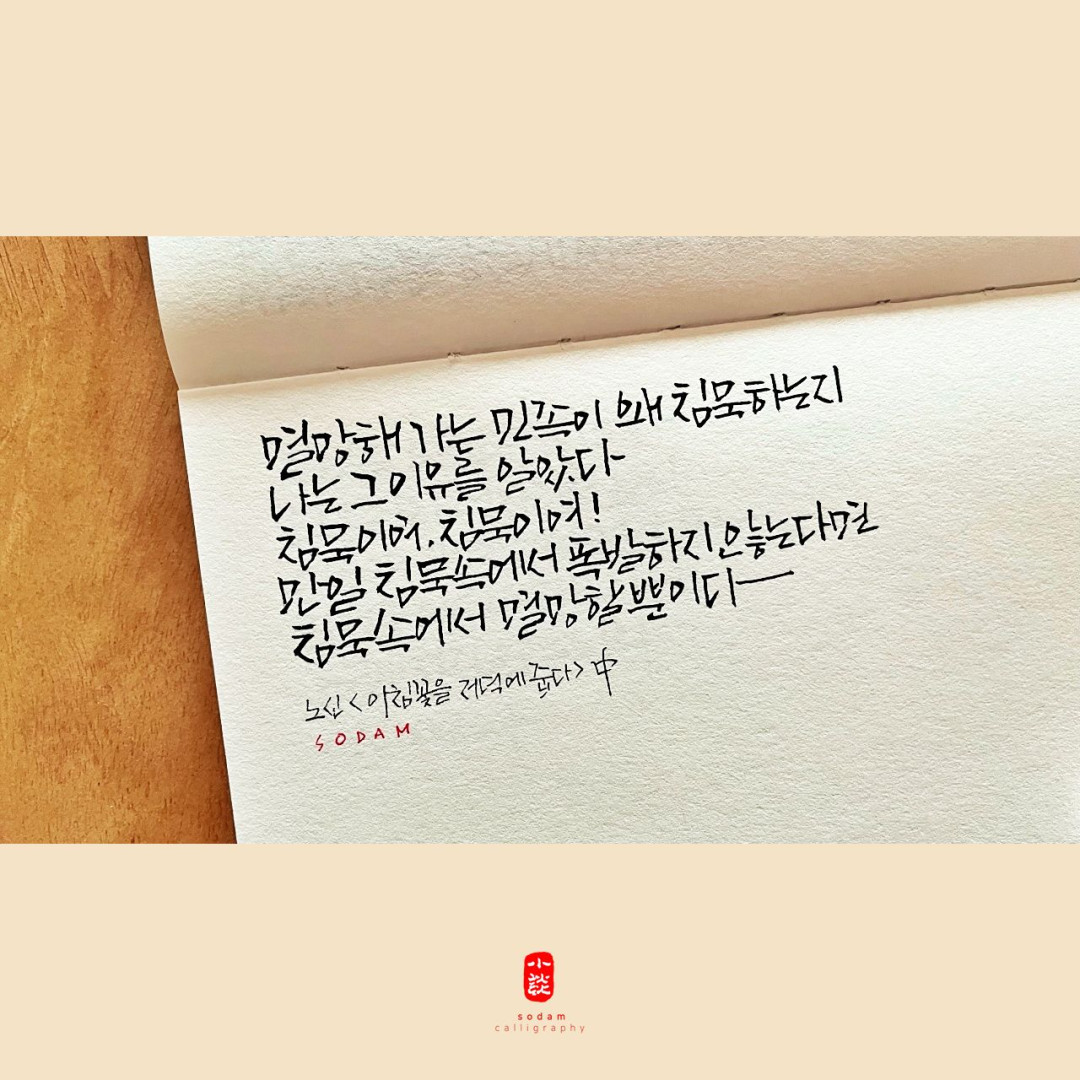 멸망해 가는 민족이 왜 침묵하는지
나는 그 이유를 알았다
침묵이여, 침묵이여!
만일 침묵속에서 폭발하지 않는다면
침묵속에서 멸망할뿐이다—
노신 <아침꽃을 저녁에 줍다> 中
SODAM
小談
sodam
calligraphy